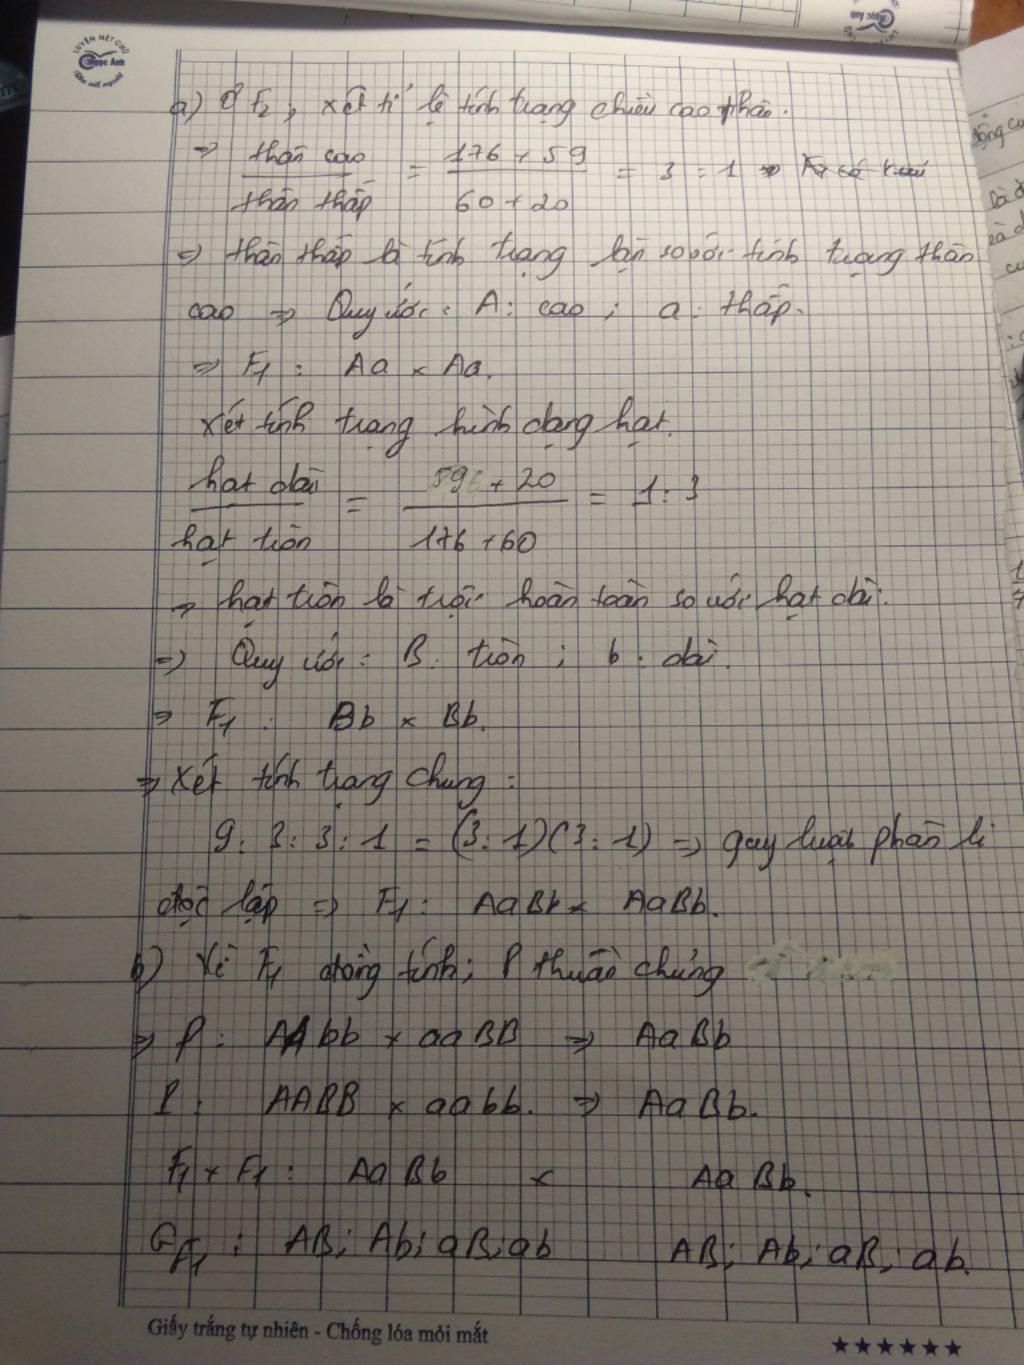 LUYỆN NÉT CHỮ
Ngọc Anh
a) Ở F2, xét tỉ lệ tính trạng chiều cao thân.
=> thân cao / thân thấp = 176 + 59 / 60 + 20 = 3 : 1 =>
=> thân thấp là tính trạng lặn so với tính trạng thân
cao => Quy ước: A: cao; a: thấp.
=> F1: Aa × Aa.
Xét tính trạng hình dạng hạt.
hạt dài / hạt tròn = 59 + 20 / 176 + 60 = 1 : 3
=> hạt tròn là trội hoàn toàn so với hạt dài.
=> Quy ước: B: tròn; b: dài.
=> F1: Bb × Bb.
=> Xét tính trạng chung:
9 : 3 : 3 : 1 = (3 : 1)(3 : 1) => quy luật phân li
độc lập => F1: AaBb × AaBb.
b) Vì F1 đồng tính; P thuần chủng
=> P: AAbb × aaBB => AaBb
P: AABB × aabb. => AaBb.
F1 × F1: AaBb × AaBb.
GF1: AB; Ab; aB; ab AB; Ab; aB; ab.
Giấy trắng tự nhiên - Chống lóa mỏi mắt
★★★★★★